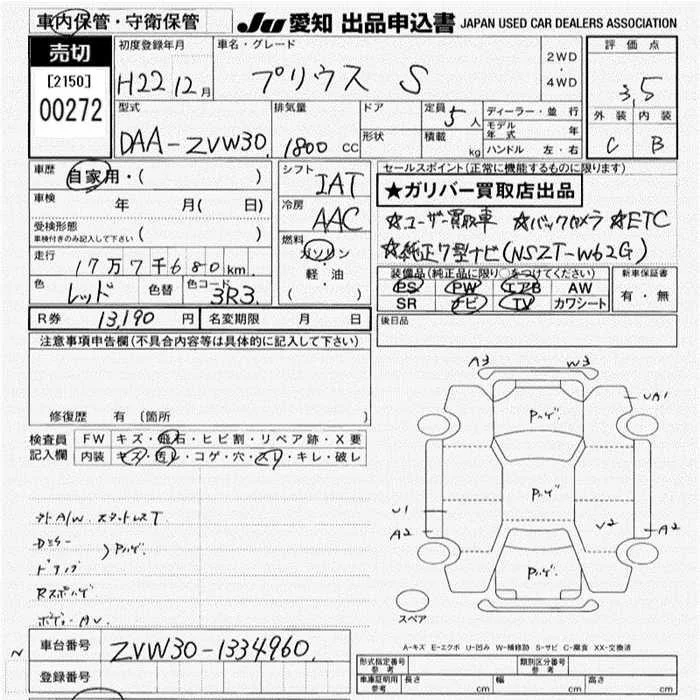 車内保管・守衛保管
JU 愛知 出品申込書 JAPAN USED CAR DEALERS ASSOCIATION
売切
[2150]
00272
初度登録年月
H22 12月
車名・グレード
プリウス S
2WD
・
4WD
評価点
3.5
外装 内装
C B
型式
DAA-ZVW30
排気量
1800 cc
ドア
形状
定員 5人
積載 kg
ディーラー・並行
モデル年式 年
ハンドル 左・右
車歴
自家用・( )
車検 年 月( 日)
受検形態
車検付きのみ記入して下さい ( )
走行
17万7千680km
色
レッド
色替
色コード
3R3
シフト
IAT
冷房
AAC
燃料
ガソリン
軽・油
( )
セールスポイント(正常に機能するものに限ります)
★ガリバー買取店出品
☆ユーザー買取車 ☆バックカメラ ☆ETC
☆純正7型ナビ(NSZT-W62G)
装備品(純正品に限り○をつけてください)
PS PW エアB AW
SR ナビ TV カワシート
新車保証書
有・無
R券 13,190 円 名変期限 月 日
後日品
注意事項申告欄(不具合内容等は具体的に記入して下さい)
修復歴 有(箇所 )
検査員記入欄
FW キズ・飛石・ヒビ割・リペア跡・X要
内装 キズ・汚レ・コゲ・穴・スレ・キレ・破レ
外A/W スタットレスT
Dミラー
ドラフ
Rスポイラ
ボディAU
A3 W3
UA1
U1
A2
U2
A2
スペア
A-キズ E-エクボ U-凹み W-補修跡 S-サビ C-腐食 XX-交換済
車台番号 ZVW30-1334960
登録番号
形式指定番号
参考
類別区分番号
参考
車庫証明用
参考
長さ cm
幅 cm
高さ cm